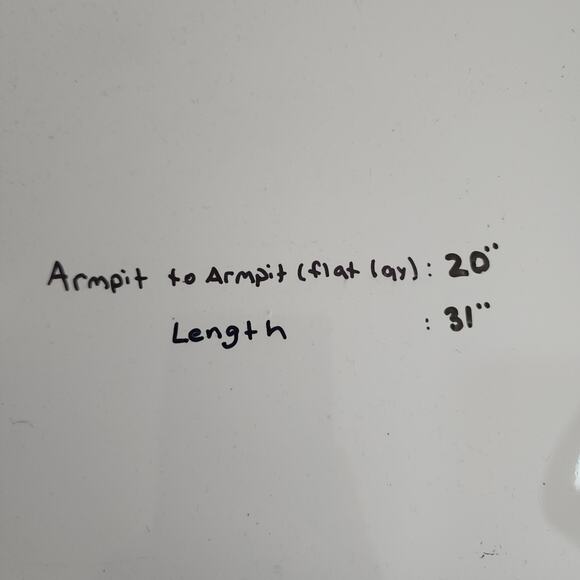 Armpit to Armpit (flat lay): 20"
Length : 31"